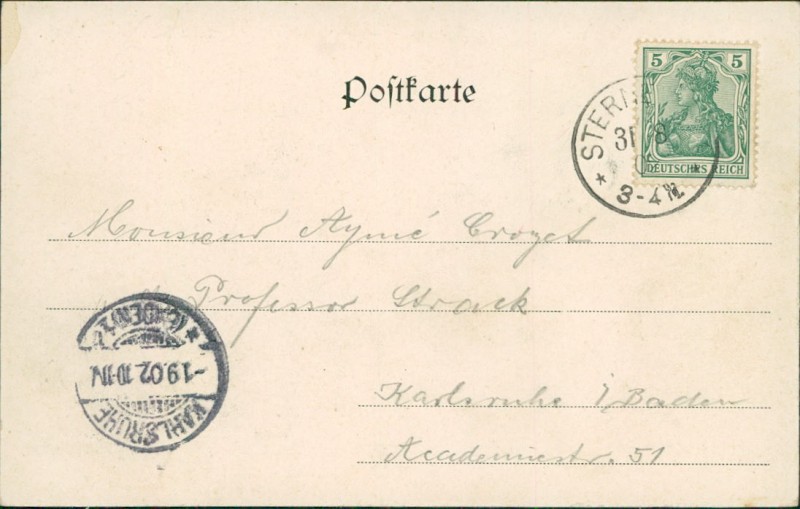 5 5
DEUTSCHES REICH
STERN
31 8
3-4N.
Postkarte
Monsieur Aymé Crozet
Professor Strack
Karlsruhe i/Baden
Academiestr. 51
KARLSRUHE
-1.9.02.10-11N
(BADEN)